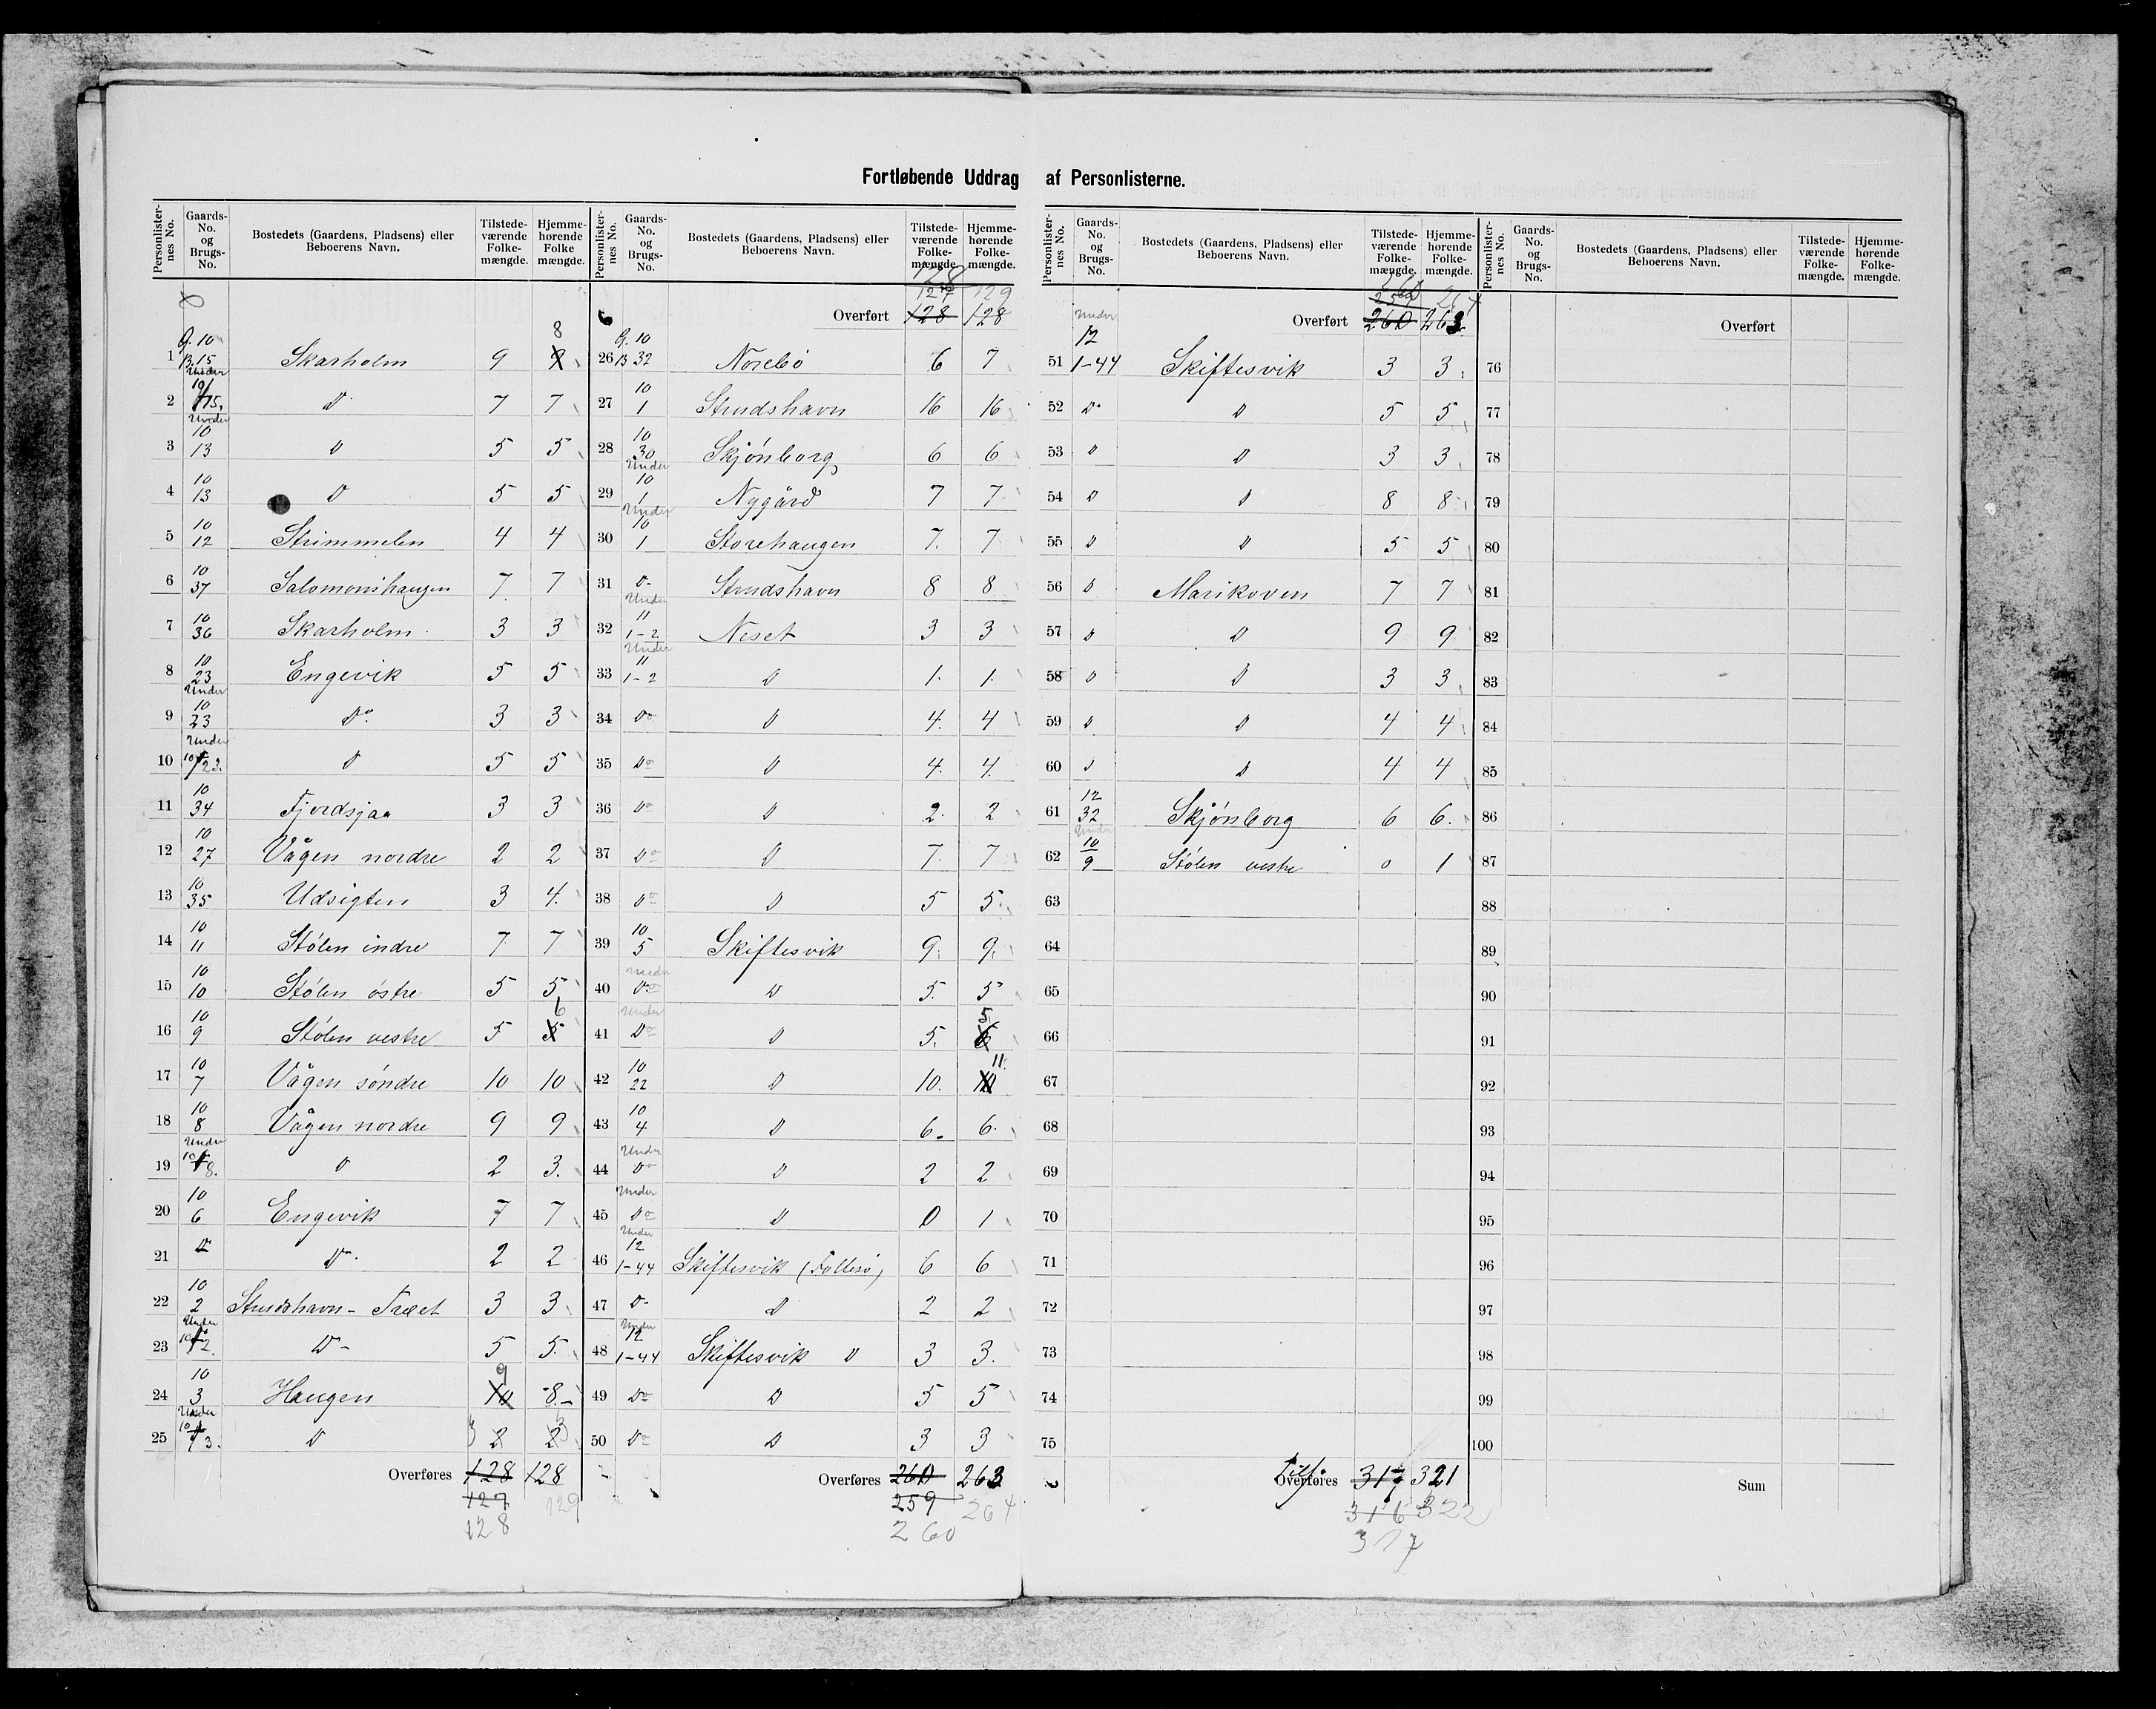 Fortløbende Uddrag af Personlisterne.
Personlister-nes No. | Gaards-No. og Brugs-No. | Bostedets (Gaardens, Pladsens) eller Beboerens Navn. | Tilstede-værende Folke-mængde. | Hjemme-hørende Folke mængde.
1 G. 10 B. 15 Skarholm 9 8
2 Under 10/15. D 7 7
3 Under 10 13 D 5 5
4 10 13 D 5 5
5 10 12 Strimmelen 4 4
6 10 37 Salomonshaugen 7 7
7 10 36 Skarholm 3 3
8 10 23 Engevik 5 5
9 Under 10 23 Do. 3 3
10 Under 10/23. D 5 5
11 10 34 Fjordsjaa 3 3
12 10 27 Vågen nordre 2 2
13 10 35 Udsigten 3 4.
14 10 11 Stølen indre 7 7
15 10 10 Stølen østre 5 5
16 10 9 Stølen vestre 5 5 6
17 10 7 Vågen søndre 10 10
18 10 8 Vågen nordre 9 9
19 Under 10 8. D 2 3.
20 10 6 Engevik 7 7
21 D D. 2 2
22 10 2 Strudshavn - Træet 3 3
23 Under 10 2. D- 5 5.
24 10 3 Haugen 10 9 8.-
25 Under 10 3. D 2 3 2 3
Overføres 128 128
127 129
128
Personlister-nes No. | Gaards-No. og Brugs-No. | Bostedets (Gaardens, Pladsens) eller Beboerens Navn. | Tilstede-værende Folke-mængde. | Hjemme-hørende Folke-mængde.
128
127 129
Overført 128 128
26 G. 10 B 32 Norebø 6 7
27 10 1 Strudshavn 16 16
28 10 30 Skjønborg 6 6
29 Under 10 1 Nygård 7 7
30 Under 10 1 Storehaugen 7. 7
31 D- Strudshavn 8 8
32 Under 11 1-2 Neset 3 3
33 Under 11 1-2 D 1. 1.
34 Do D 4. 4
35 Do D 4. 4.
36 Do D 2. 2
37 Do D 7. 7
38 Do D 5 5.
39 10 5 Skiftesvik 9. 9.
40 Under Do D 5. 5
41 Under Do D 5. 6 5
42 10 22 D 10. 10 11.
43 10 4 D 6. 6.
44 Under Do D 2 2
45 Under Do D 0 1
46 Under 12 1-44 Skiftesvik (Follesø) 6 6
47 D- D 2 2
48 Under 12 1-44 Skiftesvik D 3 3.
49 Do D 5 5
50 Do D 3 3
Overføres 260 263
259 264
260
Personlister-nes No. | Gaards-No. og Brugs-No. | Bostedets (Gaardens, Pladsens) eller Beboerens Navn. | Tilstede-værende Folke-mængde. | Hjemme-hørende Folke-mængde.
260
259 264
Overført 260 263
51 Under 12 1-44 Skiftesvik 3 3
52 D. D 5 5
53 D D 3 3
54 D D 8 8
55 D D 5 5
56 D Marikoven 7 7
57 D D 9 9
58 D D 3 3
59 D D 4 4
60 D D 4 4
61 12 32 Skjønborg 6 6.
62 Under 10 9 Stølen vestre 0 1
63
64
65
66
67
68
69
70
71
72
73
74
75
Overføres 317 321
316 322
317
Personlister-nes No. | Gaards-No. og Brugs-No. | Bostedets (Gaardens, Pladsens) eller Beboerens Navn. | Tilstede-værende Folke-mængde. | Hjemme-hørende Folke-mængde.
Overført
76
77
78
79
80
81
82
83
84
85
86
87
88
89
90
91
92
93
94
95
96
97
98
99
100
Sum